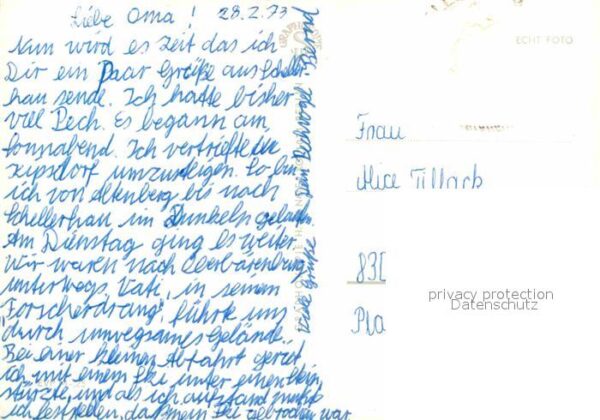 Liebe Oma! 28.2.73
Nun wird es Zeit das ich
Dir ein Paar Grüße aus Scheller-
hau sende. Ich hatte bisher
viel Pech. Es begann am
Sonnabend. Ich vertrieftete in
Kipsdorf umzusteigen. So bin
ich von Altenberg bis nach
Schellerhau im Dunkeln gelaufen.
Am Dienstag ging es weiter.
Wir waren nach Oberbärenburg
unterwegs. Vati, in seinem
"Forscherdrang", führte uns
durch unwegsames Gelände.
Bei einer kleinen Abfahrt geriet
ich mit einem Ski unter einen
stürzte, und als ich aufstand mußte
ich feststellen, daß mein Ski gebrochen war
Viele Grüße Dein Pechvogel Bernd
ECHT FOTO
Frau
Alice Tillack
Pla
privacy protection
Datenschutz